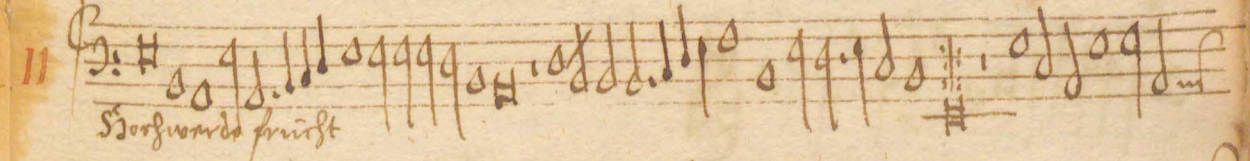 11
Hochwerde frücht